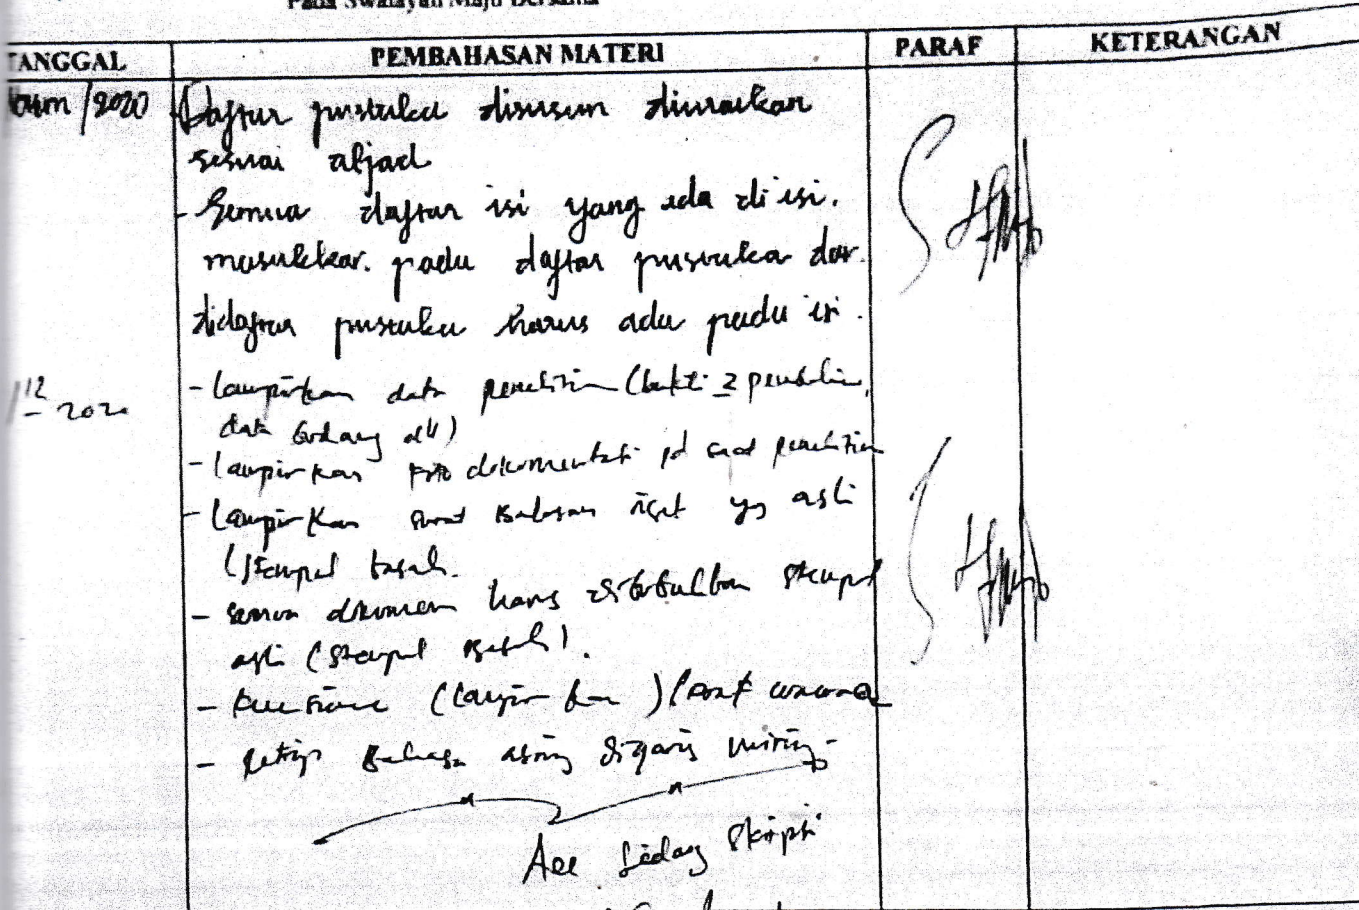 Pada Swalayan Maju Bersama
TANGGAL PEMBAHASAN MATERI PARAF KETERANGAN
/2020 Daftar pustaka disusun diuraikan
sesuai abjad
- Semua daftar isi yang ada di isi.
masukkan. pada daftar pustaka dan
didaftar pustaka harus ada pada isi.
12 2020 - Lampirkan data penelitian (bukti
data Gudang dll)
- Lampirkan Foto dokumentasi pd saat penelitian
- Lampirkan surat Balasan riset yg asli
(stempel basah.
- Semua dokumen harus dibubuhkan stempel
asli (stempel Basah).
- (Lampirkan)
- Setiap Bahasa asing digaris miring -
Acc Sidang Skripsi